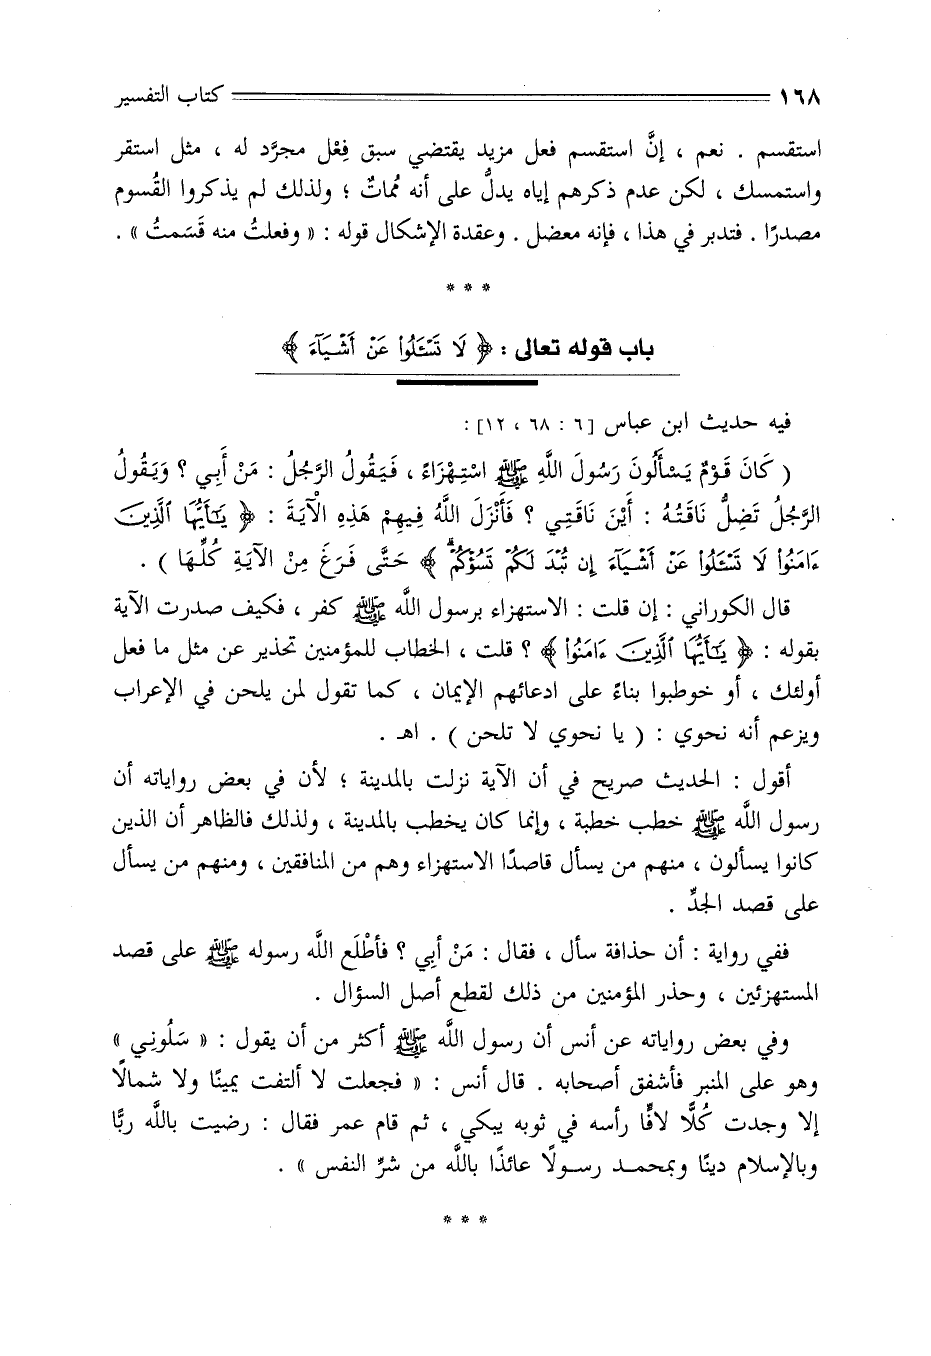 ١٦٨ كتاب التفسير
استقسم . نعم ، إنَّ استقسم فعل مزيد يقتضي سبق فِعْل مجرَّد له ، مثل استقر
واستمسك ، لكن عدم ذكرهم إياه يدلُّ على أنه مُماتٌ ؛ ولذلك لم يذكروا القُسوم
مصدرًا . فتدبر في هذا ، فإنه معضل . وعقدة الإشكال قوله : « وفعلتُ منه قَسَمتُ » .
* * *
باب قوله تعالى : ﴿ لَا تَسْـَٔلُوا۟ عَنْ أَشْيَآءَ ﴾
فيه حديث ابن عباس [ ٦ : ٦٨ ، ١٢] :
( كَانَ قَوْمٌ يَسْأَلُونَ رَسُولَ اللَّهِ ﷺ اسْتِهْزَاءً ، فَيَقُولُ الرَّجُلُ : مَنْ أَبِي ؟ وَيَقُولُ
الرَّجُلُ تَضِلُّ نَاقَتُهُ : أَيْنَ نَاقَتِي ؟ فَأَنْزَلَ اللَّهُ فِيهِمْ هَذِهِ الْآيَةَ : ﴿ يَـٰٓأَيُّهَا ٱلَّذِينَ
ءَامَنُوا۟ لَا تَسْـَٔلُوا۟ عَنْ أَشْيَآءَ إِن تُبْدَ لَكُمْ تَسُؤْكُمْ ﴾ حَتَّى فَرَغَ مِنْ الآيَةِ كُلِّهَا ) .
قال الكوراني : إن قلت : الاستهزاء برسول اللَّه ﷺ كفر ، فكيف صدرت الآية
بقوله : ﴿ يَـٰٓأَيُّهَا ٱلَّذِينَ ءَامَنُوا۟ ﴾ ؟ قلت ، الخطاب للمؤمنين تحذير عن مثل ما فعل
أولئك ، أو خوطبوا بناءً على ادعائهم الإيمان ، كما تقول لمن يلحن في الإعراب
ويزعم أنه نحوي : ( يا نحوي لا تلحن ) . اهـ .
أقول : الحديث صريح في أن الآية نزلت بالمدينة ؛ لأن في بعض رواياته أن
رسول اللَّه ﷺ خطب خطبة ، وإنما كان يخطب بالمدينة ، ولذلك فالظاهر أن الذين
كانوا يسألون ، منهم من يسأل قاصدًا الاستهزاء وهم من المنافقين ، ومنهم من يسأل
على قصد الجدِّ .
ففي رواية : أن حذافة سأل ، فقال : مَنْ أبِي ؟ فأطْلَع اللَّه رسوله ﷺ على قصد
المستهزئين ، وحذر المؤمنين من ذلك لقطع أصل السؤال .
وفي بعض رواياته عن أنس أن رسول اللَّه ﷺ أكثر من أن يقول : « سَلُونِي »
وهو على المنبر فأشفق أصحابه . قال أنس : « فجعلت لا ألتفت يمينًا ولا شمالًا
إلا وجدت كُلًّا لافًّا رأسه في ثوبه يبكي ، ثم قام عمر فقال : رضيت باللَّه ربًّا
وبالإسلام دينًا وبمحمد رسولًا عائذًا باللَّه من شرِّ النفس » .
* * *